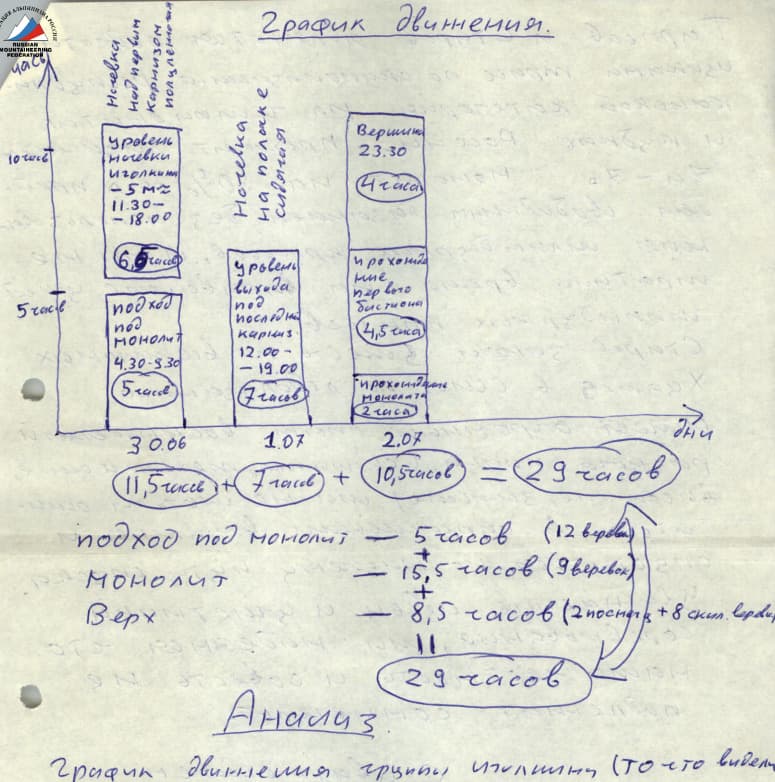 АЦИЯ АЛЬПИНИЗМА РОССИИ
RUSSIAN
MOUNTAINEERING
FEDERATION
График движения.
часы
10 часов
5 часов
Ночевка
над первым
карнизом
уровень
ночевки
11.30 -
- 18.00
6,5 часов
подход
под
монолит
4.30-9.30
5 часов
Ночевка
на полочке
сидячая
уровень
выхода
под
последний
карниз
12.00 -
- 19.00
7 часов
Вершина
23.30
4 часа
прохожде
ние
первого
бастиона
4,5 часа
прохождение
монолита
2 часа
дни
30.06 1.07 2.07
11,5 часов + 7 часов + 10,5 часов = 29 часов
подход под монолит — 5 часов (12 веревок)
+
монолит — 15,5 часов (9 веревок)
+
Верх — 8,5 часов (2 + 8 скал. верев
=
29 часов
Анализ
График движения группы (то что видели